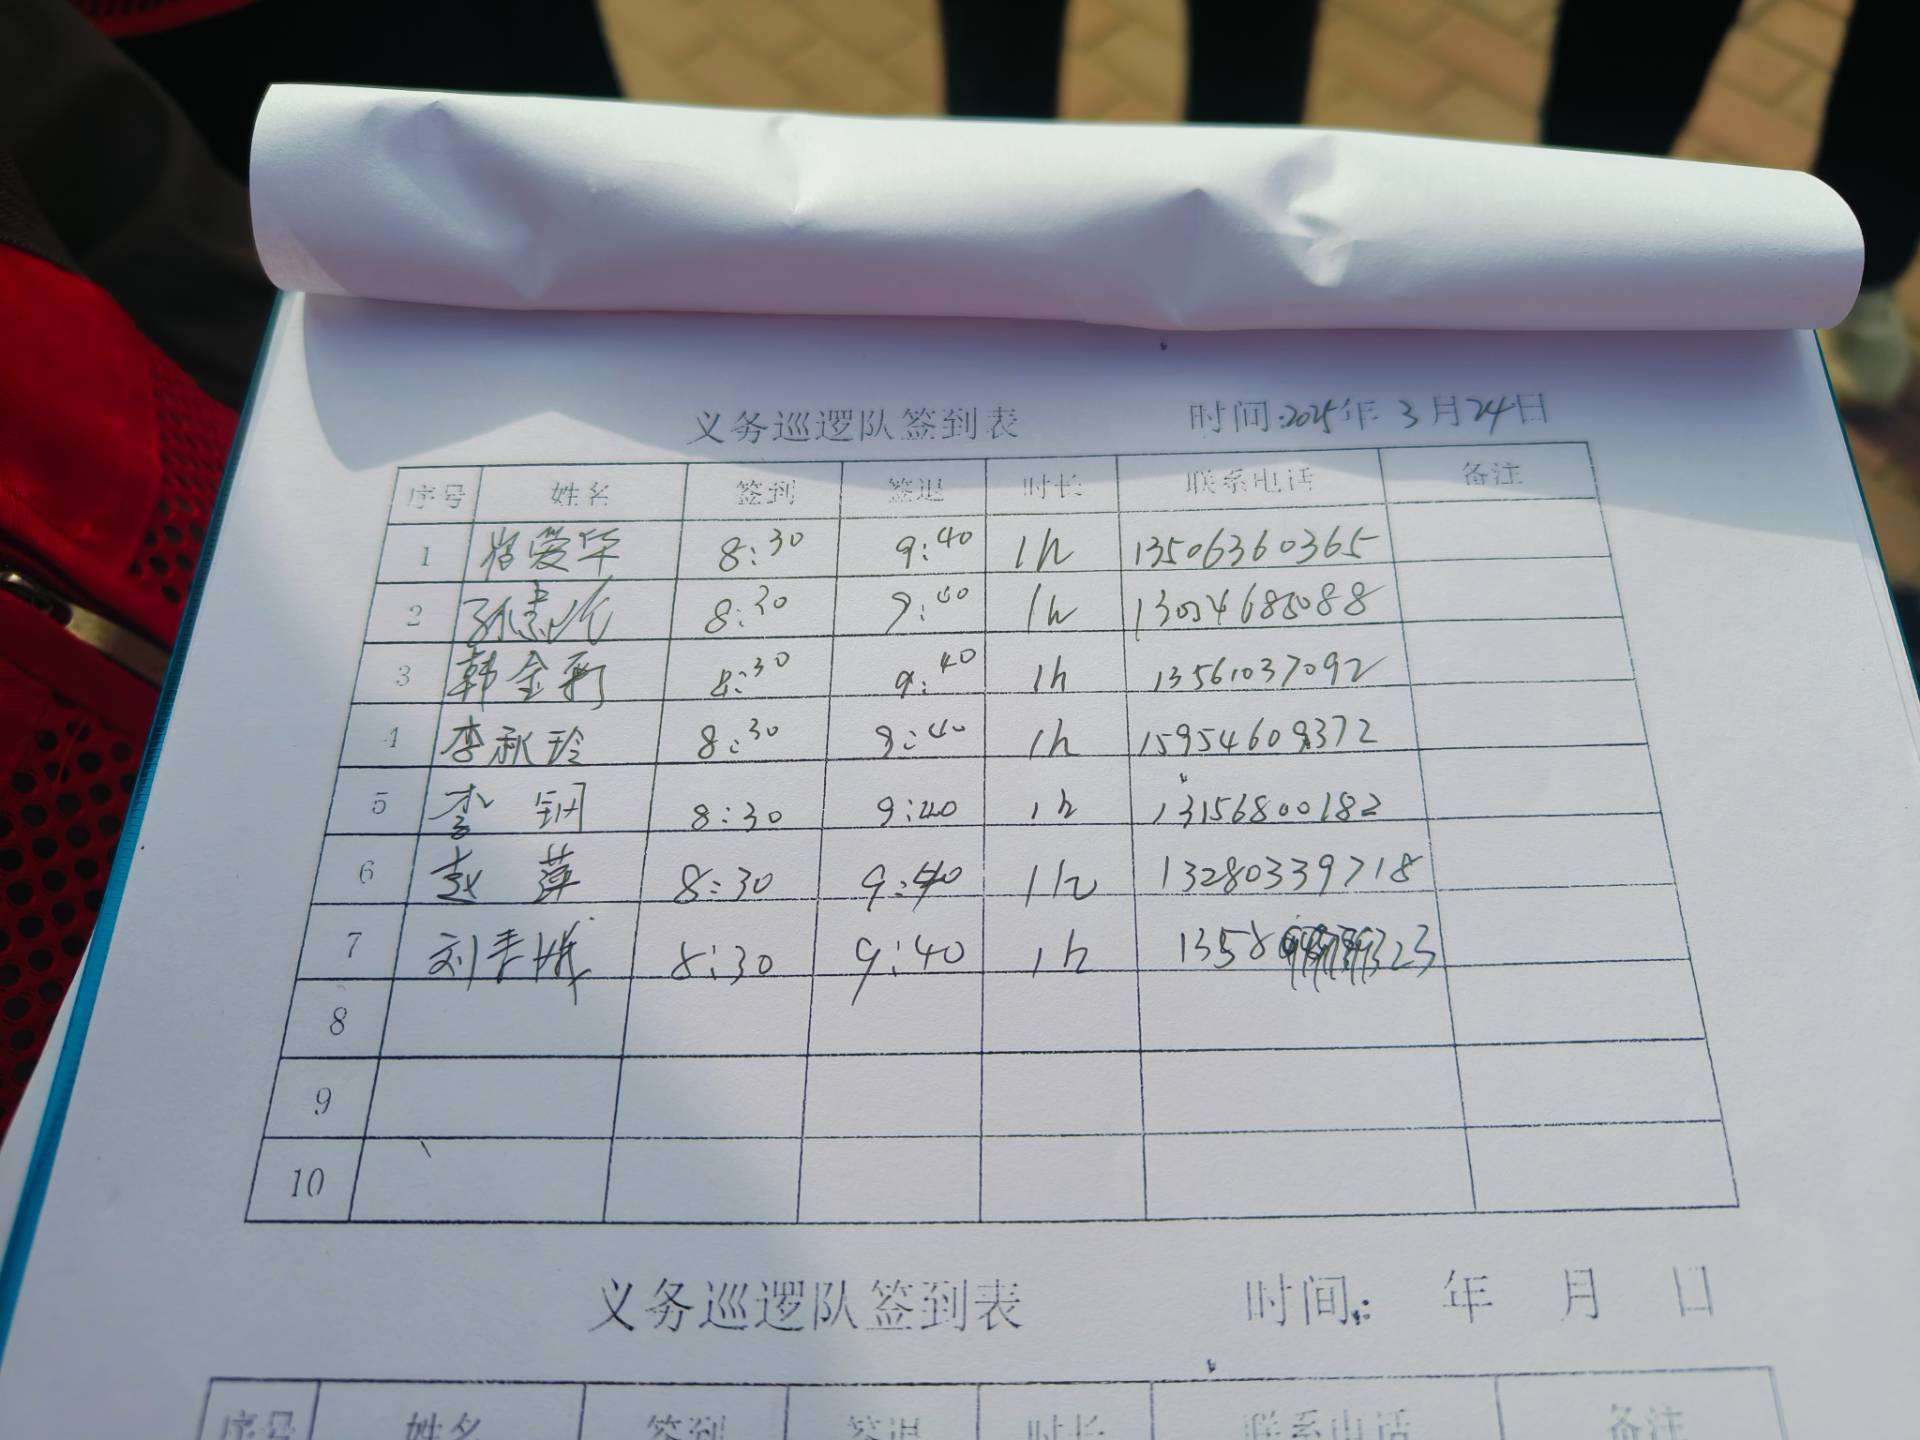 义务巡逻队签到表 时间:2025年 3月24日
序号 姓名 签到 签退 时长 联系电话 备注
1 爱华 8:30 9:40 1h 13506360365
2 孙 8:30 9:40 1h
3 韩金彩 8:30 9:40 1h 13561037092
4 李秋玲 8:30 9:40 1h
5 李钢 8:30 9:40 1h 13156800182
6 赵萍 8:30 9:40 1h 13280339718
7 刘 8:30 9:40 1h
8
9
10
义务巡逻队签到表 时间: 年 月 日
序号 姓名 签到 签退 时长 联系电话 备注